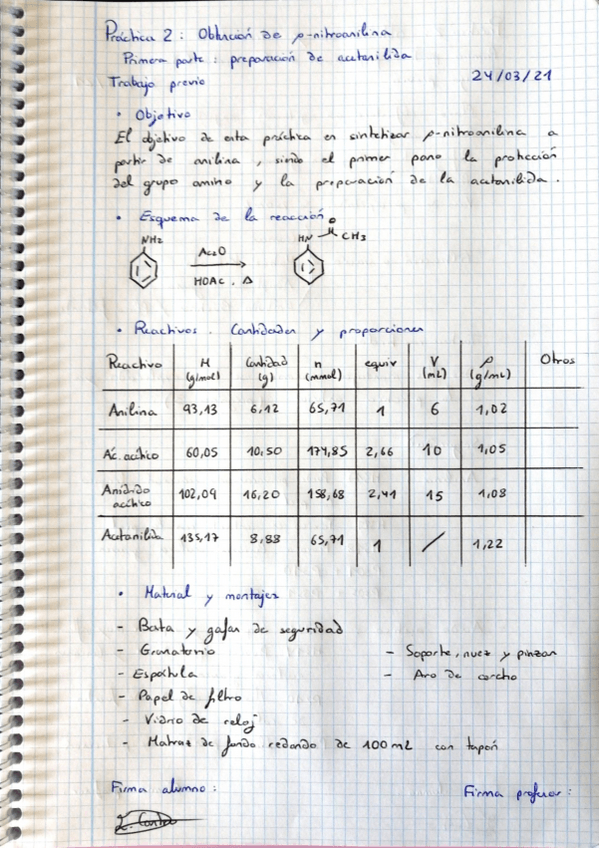 Práctica 2: Obtención de p-nitroanilina
Primera parte: preparación de acetanilida
Trabajo previo 24/03/21
• Objetivo
El objetivo de esta práctica es sintetizar p-nitroanilina a
partir de anilina, siendo el primer paso la protección
del grupo amino y la preparación de la acetanilida.
• Esquema de la reacción
NH2 Ac2O HN O CH3
HOAc, Δ
• Reactivos. Cantidades y proporciones
Reactivo M (g/mol) Cantidad (g) n (mmol) equiv V (mL) ρ (g/mL) Otros
Anilina 93,13 6,12 65,71 1 6 1,02
Ác. acético 60,05 10,50 174,85 2,66 10 1,05
Anhídrido acético 102,09 16,20 158,68 2,41 15 1,08
Acetanilida 135,17 8,88 65,71 1 / 1,22
• Material y montajes
- Bata y gafas de seguridad
- Granatario - Soporte, nuez y pinzas
- Espátula - Aro de corcho
- Papel de filtro
- Vidrio de reloj
- Matraz de fondo redondo de 100 mL con tapón
Firma alumno: Firma profesor: